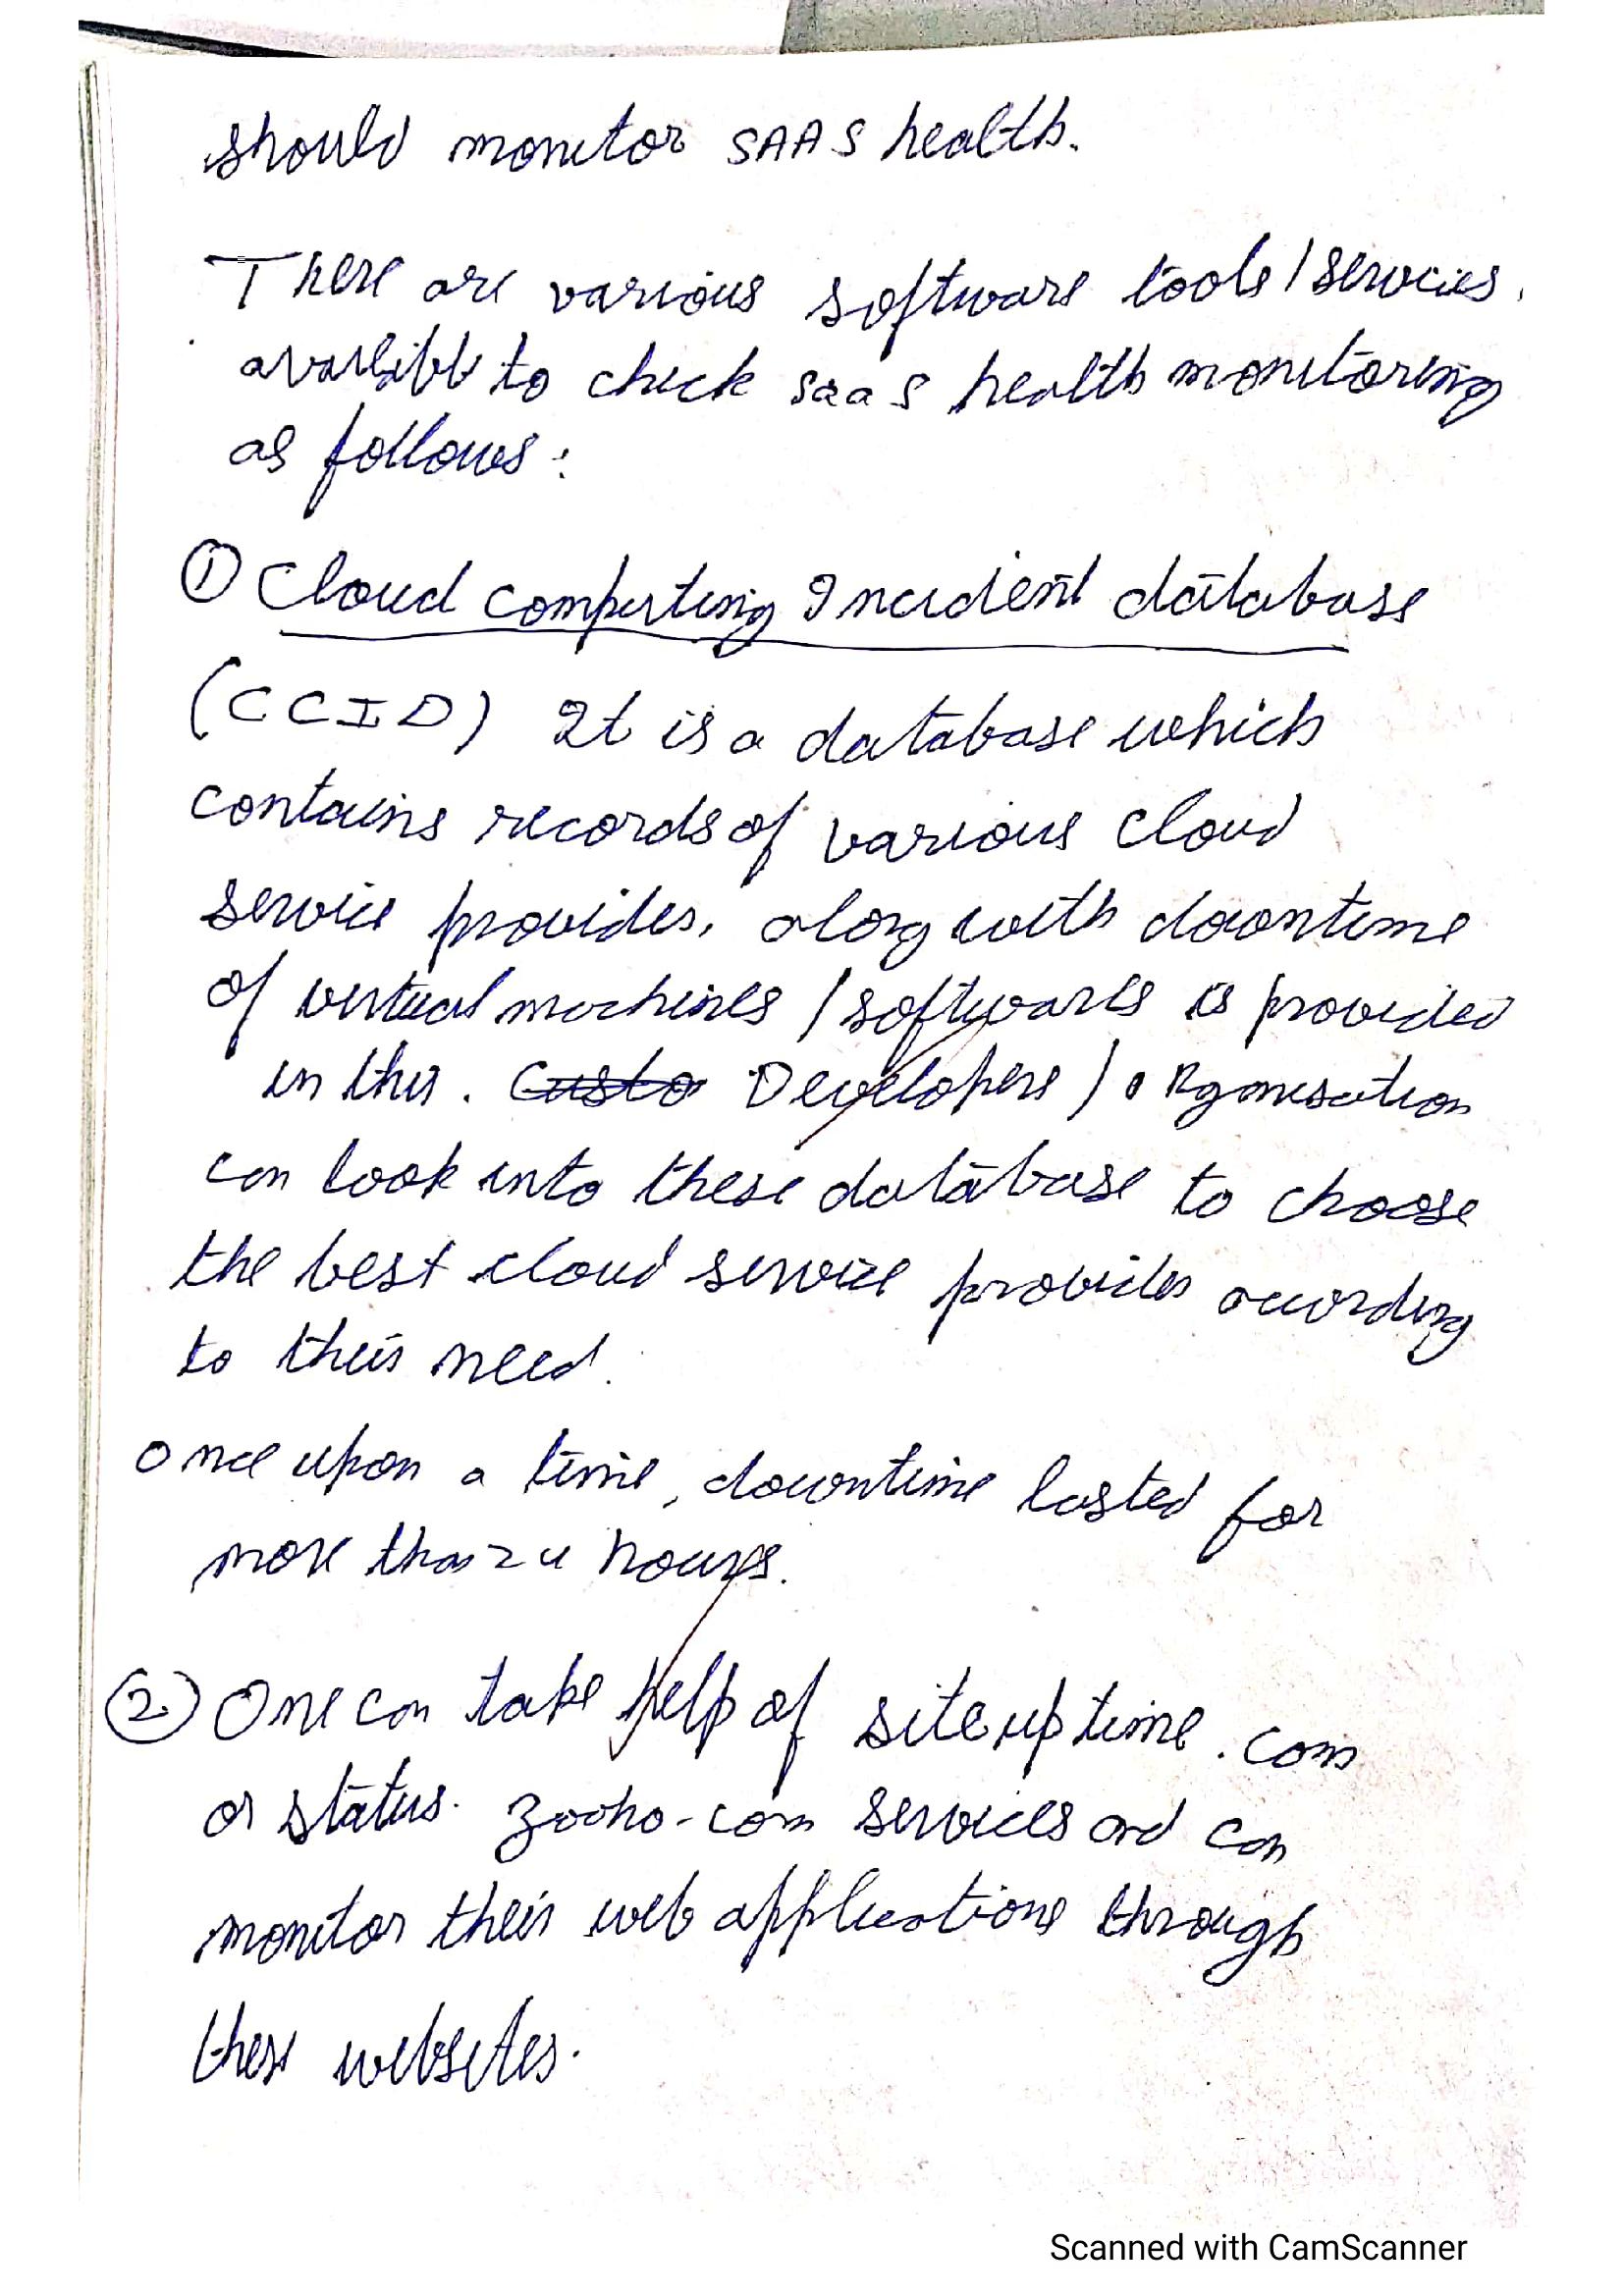 should monitor SAAS health.
There are various software tools / services
available to check saas health monitoring
as follows:
① Cloud computing Incident database
(CCID) It is a database which
contains records of various cloud
service provides, along with downtime
of virtual machines / softwares is provided
in this. Custo Developers / organisation
can look into these database to choose
the best cloud service provider according
to their need.
Once upon a time, downtime lasted for
more than 24 hours.
② One can take help of siteuptime.com
or status.zooho.com services and can
monitor their web applications through
these websites.
Scanned with CamScanner